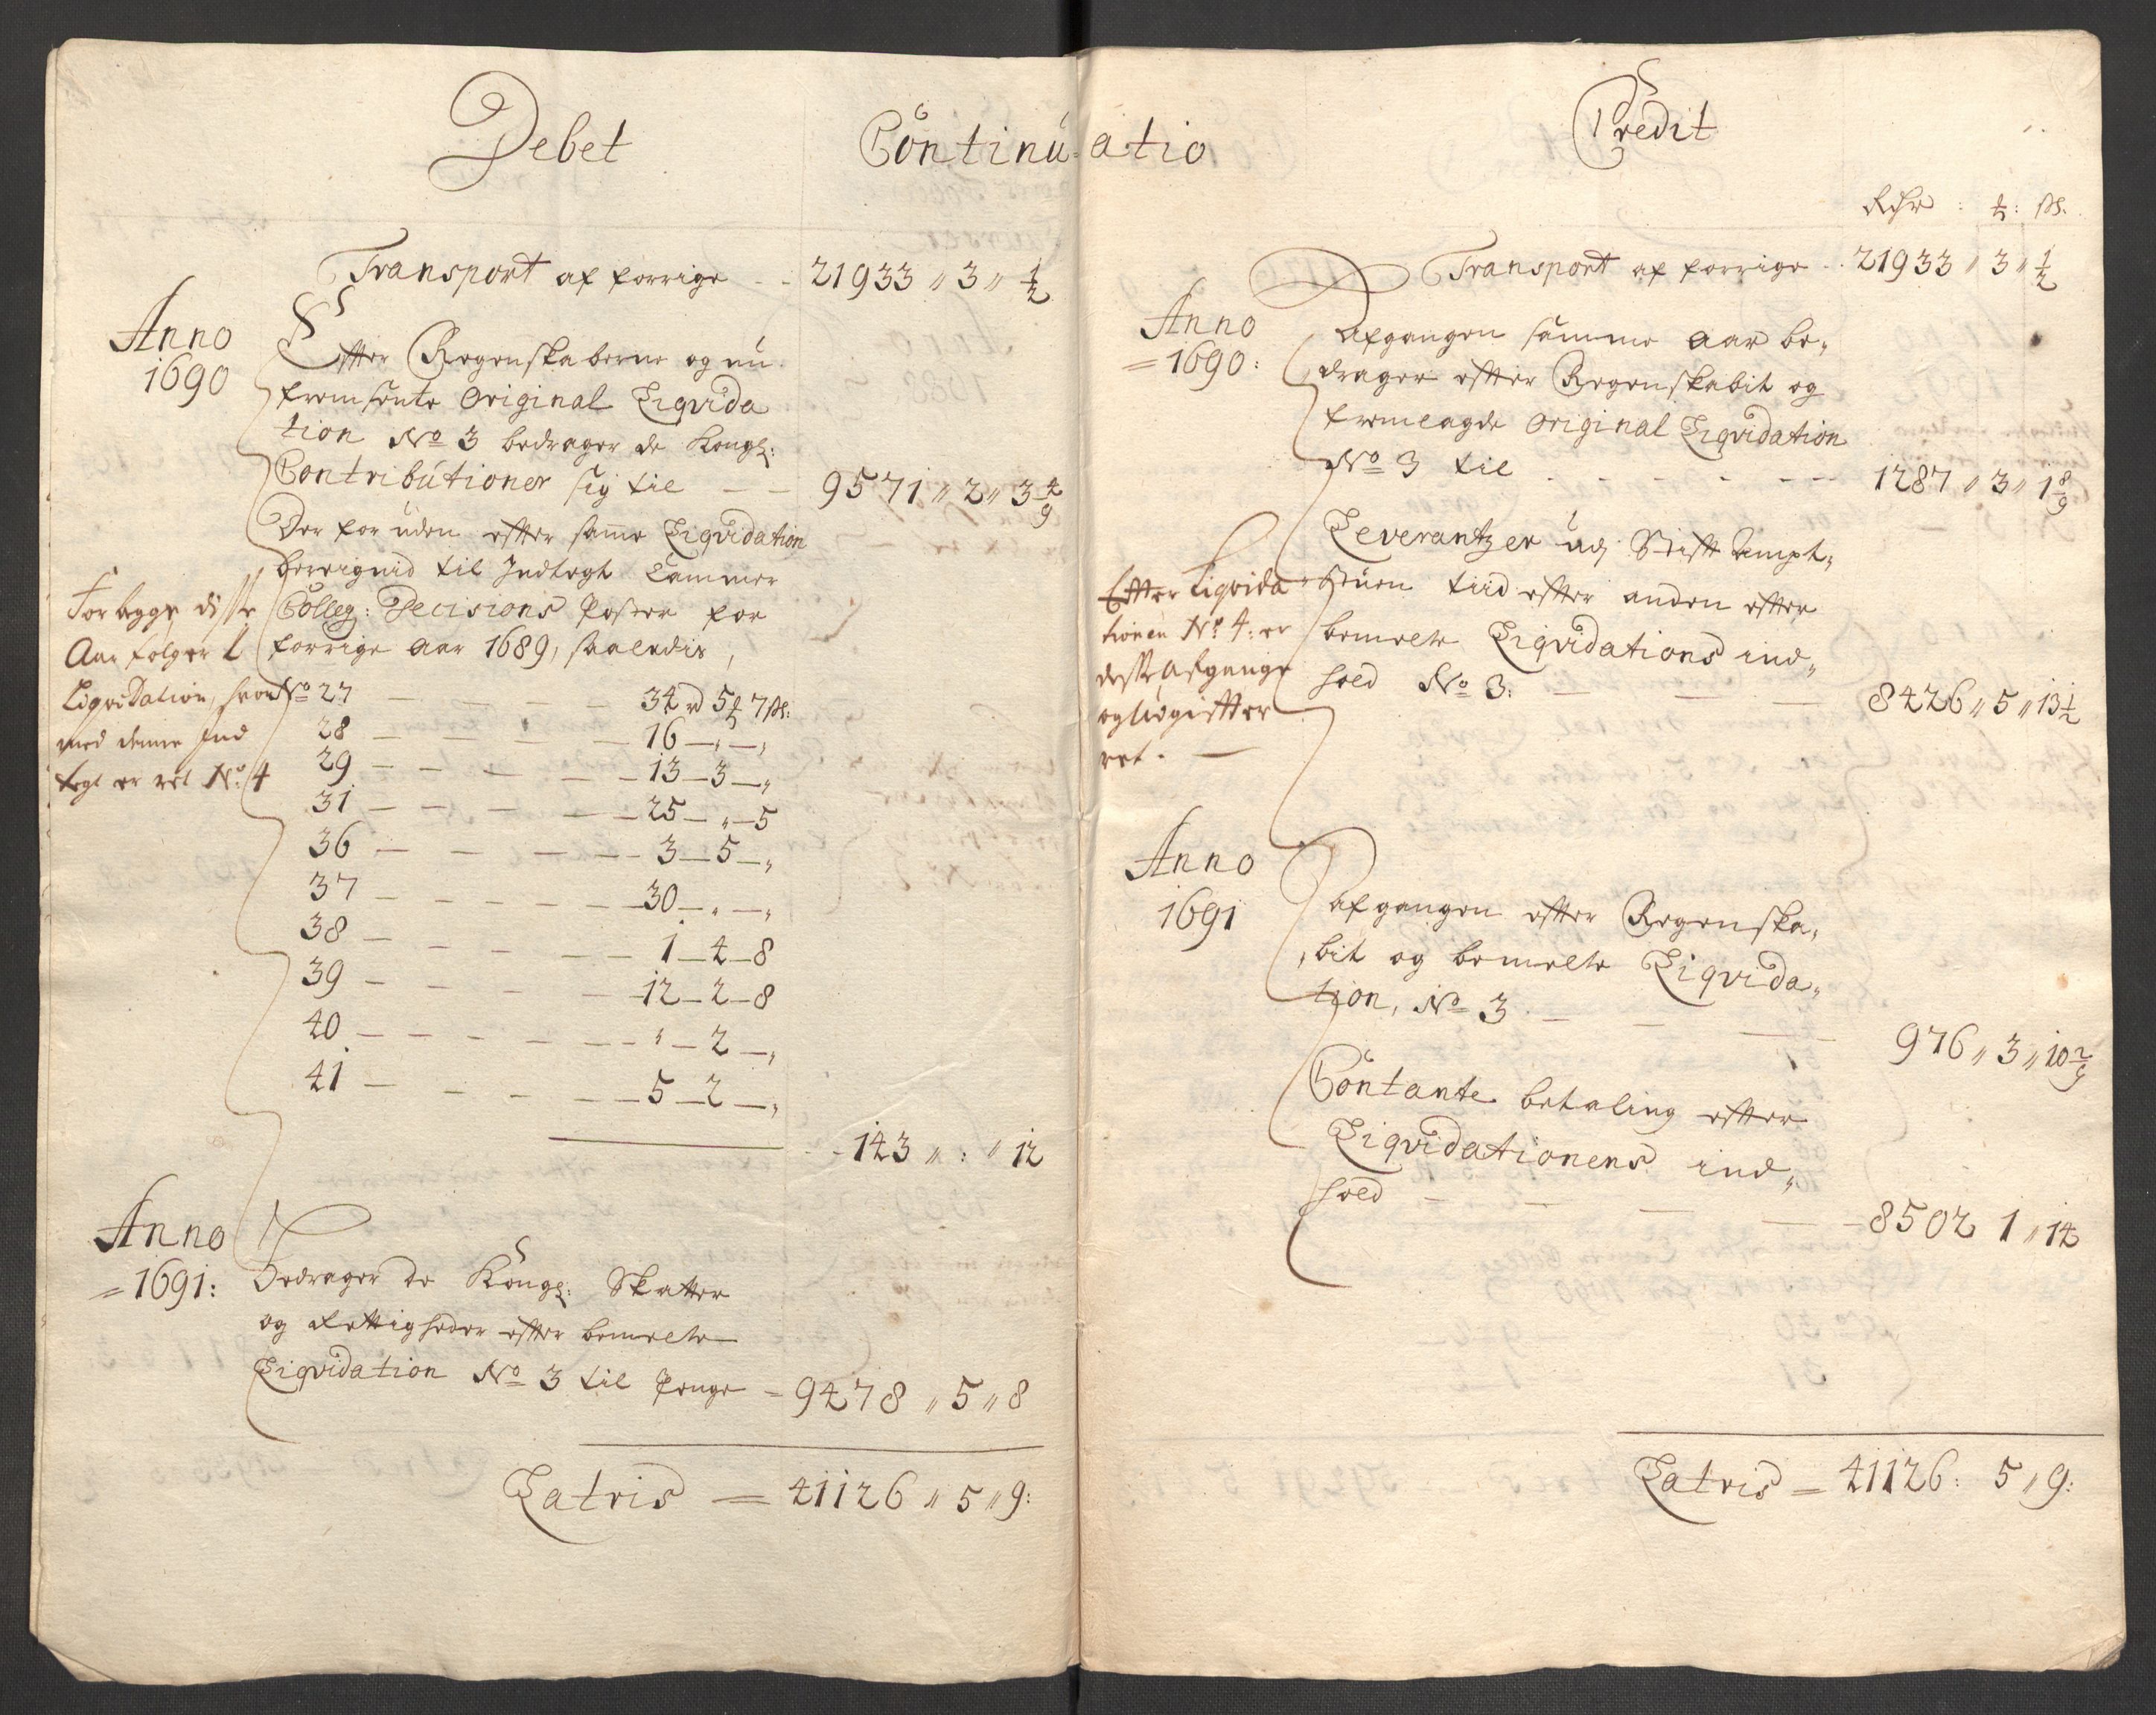 Debet
Continu-
Transport af forrige - - 21933 „ 3 „ ½
Anno
1690
Efter Regenskaberne og nu
fremsente Original Liqvida
tion No 3 bedrager de Kongl:
Contributioner sig til - - 9571 „ 2 „ 3 4/9
Der foruden efter samme Liqvidation
berreignid til Indtegt Cammer
Colleg: Decisions Poster for
forrige Aar 1689, saaledis,
For begge disse
Aar følger 1
Liqvidation, hvor
med denne Ind
tegt er ret No. 4
No 27 - - - - 34 rd 5 ƚ 7 ß:
28 - - - - - 16 - „ - „
29 - - - - - 13 - 3 - „
31 - - - - - 25 - „ - 5
36 - - - - - 3 - 5 - „
37 - - - - - 30 - „ - „
38 - - - - - 1 - 4 - 8
39 - - - - - 12 - 2 - 8
40 - - - - - „ - 2 - „
41 - - - - - 5 - 2 - „
- - 143 „ : „ 12
Anno
= 1691:
Bedrager de Kongl: Skatter
og Rettigheder efter bemelte
Liqvidation No 3 til Penge = 9478 „ 5 „ 8
Latris = 41126 „ 5 „ 9:
Credit
atio
Rdr : ƚ : ß.
Transport af forrige - - 21933 „ 3 „ ½
Anno
= 1690:
Afgangen samme Aar be,
drager efter Regenskabit og
fremlagde Original Liqvidation
No 3 til - - - - - 1287 „ 3 „ 1 8/9
Leverantzer udj Stift Ampt,
Stuen tiid efter anden efter
bemelte Liqvidations ind„
hold No 3: - - - 8426 „ 5 „ 13 ½
Efter Liqvida
tionen No 4: er
desse Afgange
og Udgifter
ret. -
Anno
1691
Afgangen efter Regenska,
bit og bemelte Liqvida„
tion, No 3. - - - - 976 „ 3 „ 10 2/9
Contante betaling efter
Liqvidationens ind„
hold - - - - 8502 1 „ 14
Latris = 41126: 5 „ 9: